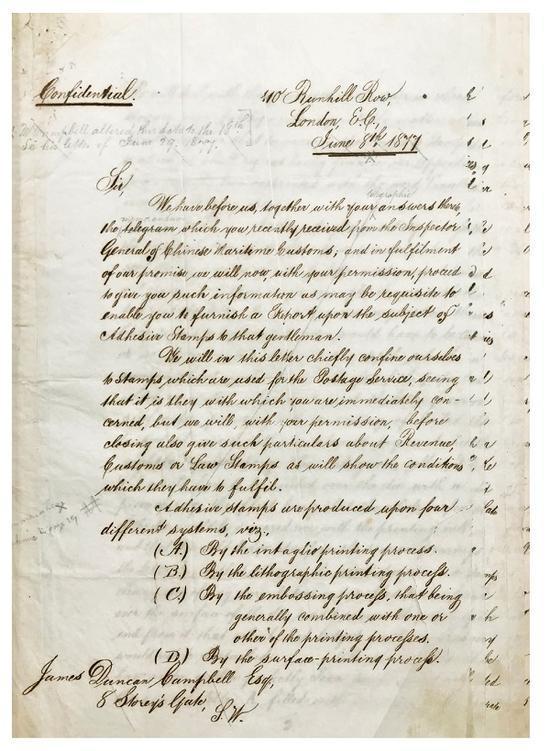 Confidential.
110 Bunhill Row,
London, E.C.,
June 8th 1877
Campbell altered this date to the
See his letter of June 29. 1877.
Sir,
telegraphic
We have before us, together with your answers thereto,
the telegram which you recently received from the Inspector
General of Chinese Maritime Customs; and in fulfilment
of our promise, we will now with your permission, proceed
to give you such information as may be requisite to
enable you to furnish a Report upon the subject of
Adhesive Stamps to that gentleman.
We will in this letter chiefly confine ourselves
to Stamps, which are used for the Postage Service, seeing
that it is they with which you are immediately con-
cerned, but we will, with your permission, before
closing also give such particulars about Revenue,
Customs or Law Stamps as will show the conditions
which they have to fulfil.
Adhesive stamps are produced upon four
different systems, viz.,
(A.) By the intaglio printing process.
(B.) By the lithographic printing process.
(C.) By the embossing process, that being
generally combined with one or
other of the printing processes.
(D.) By the surface-printing process.
James Duncan Campbell Esq.,
8 Storey's Gate,
S.W.